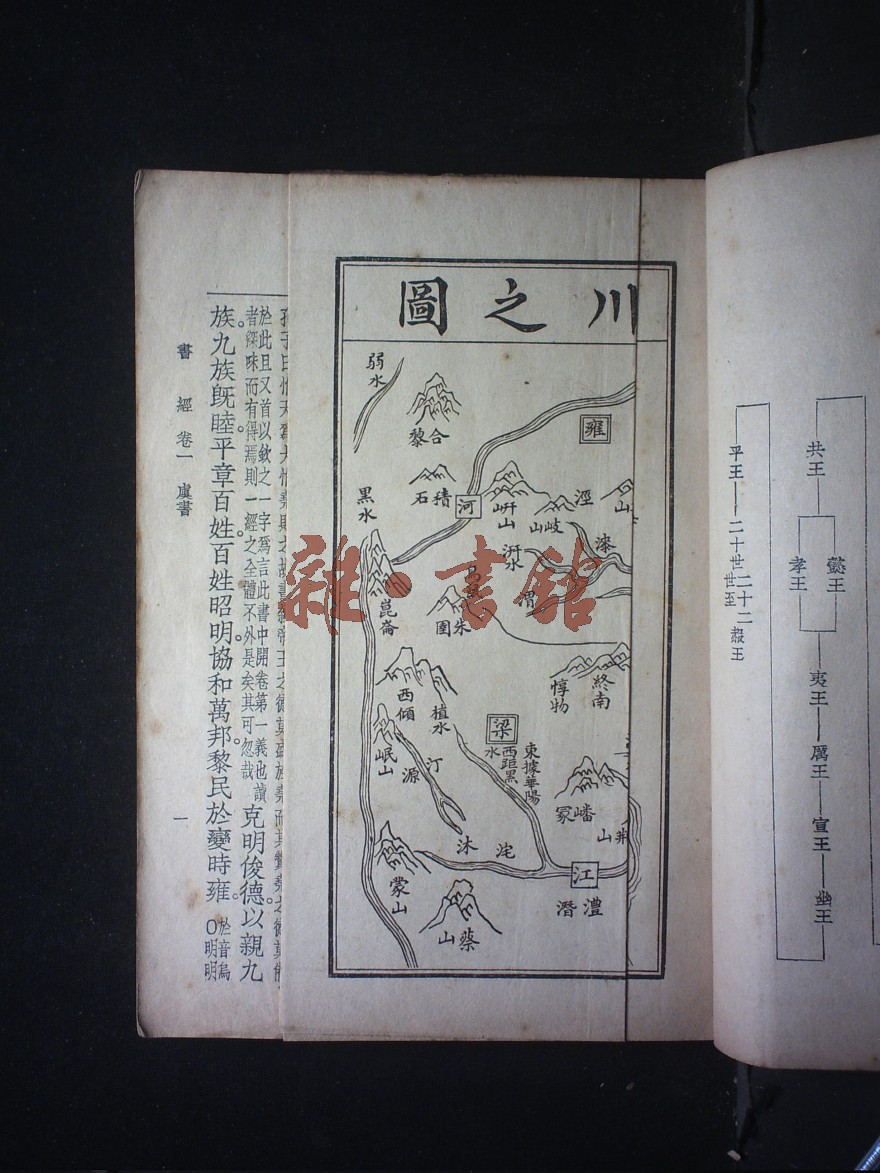 共王
懿王
孝王
夷王
厲王
宣王
幽王
平王
二十世二十二
世至
赧王
川之圖
雍
涇
漆
岐山
岍山
汧水
渭
河
合黎
積石
弱水
黑水
崑崙
朱圉
終南
惇物
西傾
植水
岷山
汀
源
梁
東據華陽
西距黑
水
嶓冢
山
沱
沐
江
澧
潛
蒙山
蔡山
雜·書館
於此且又首以欽之一字爲言此書中開卷第一義也讀
者深味而有得焉則一經之全體不外是矣其可忽哉
克明俊德。以親九
族。九族旣睦。平章百姓。百姓昭明。協和萬邦。黎民於變時雍。
於音烏
○明明
書經卷一 虞書
一